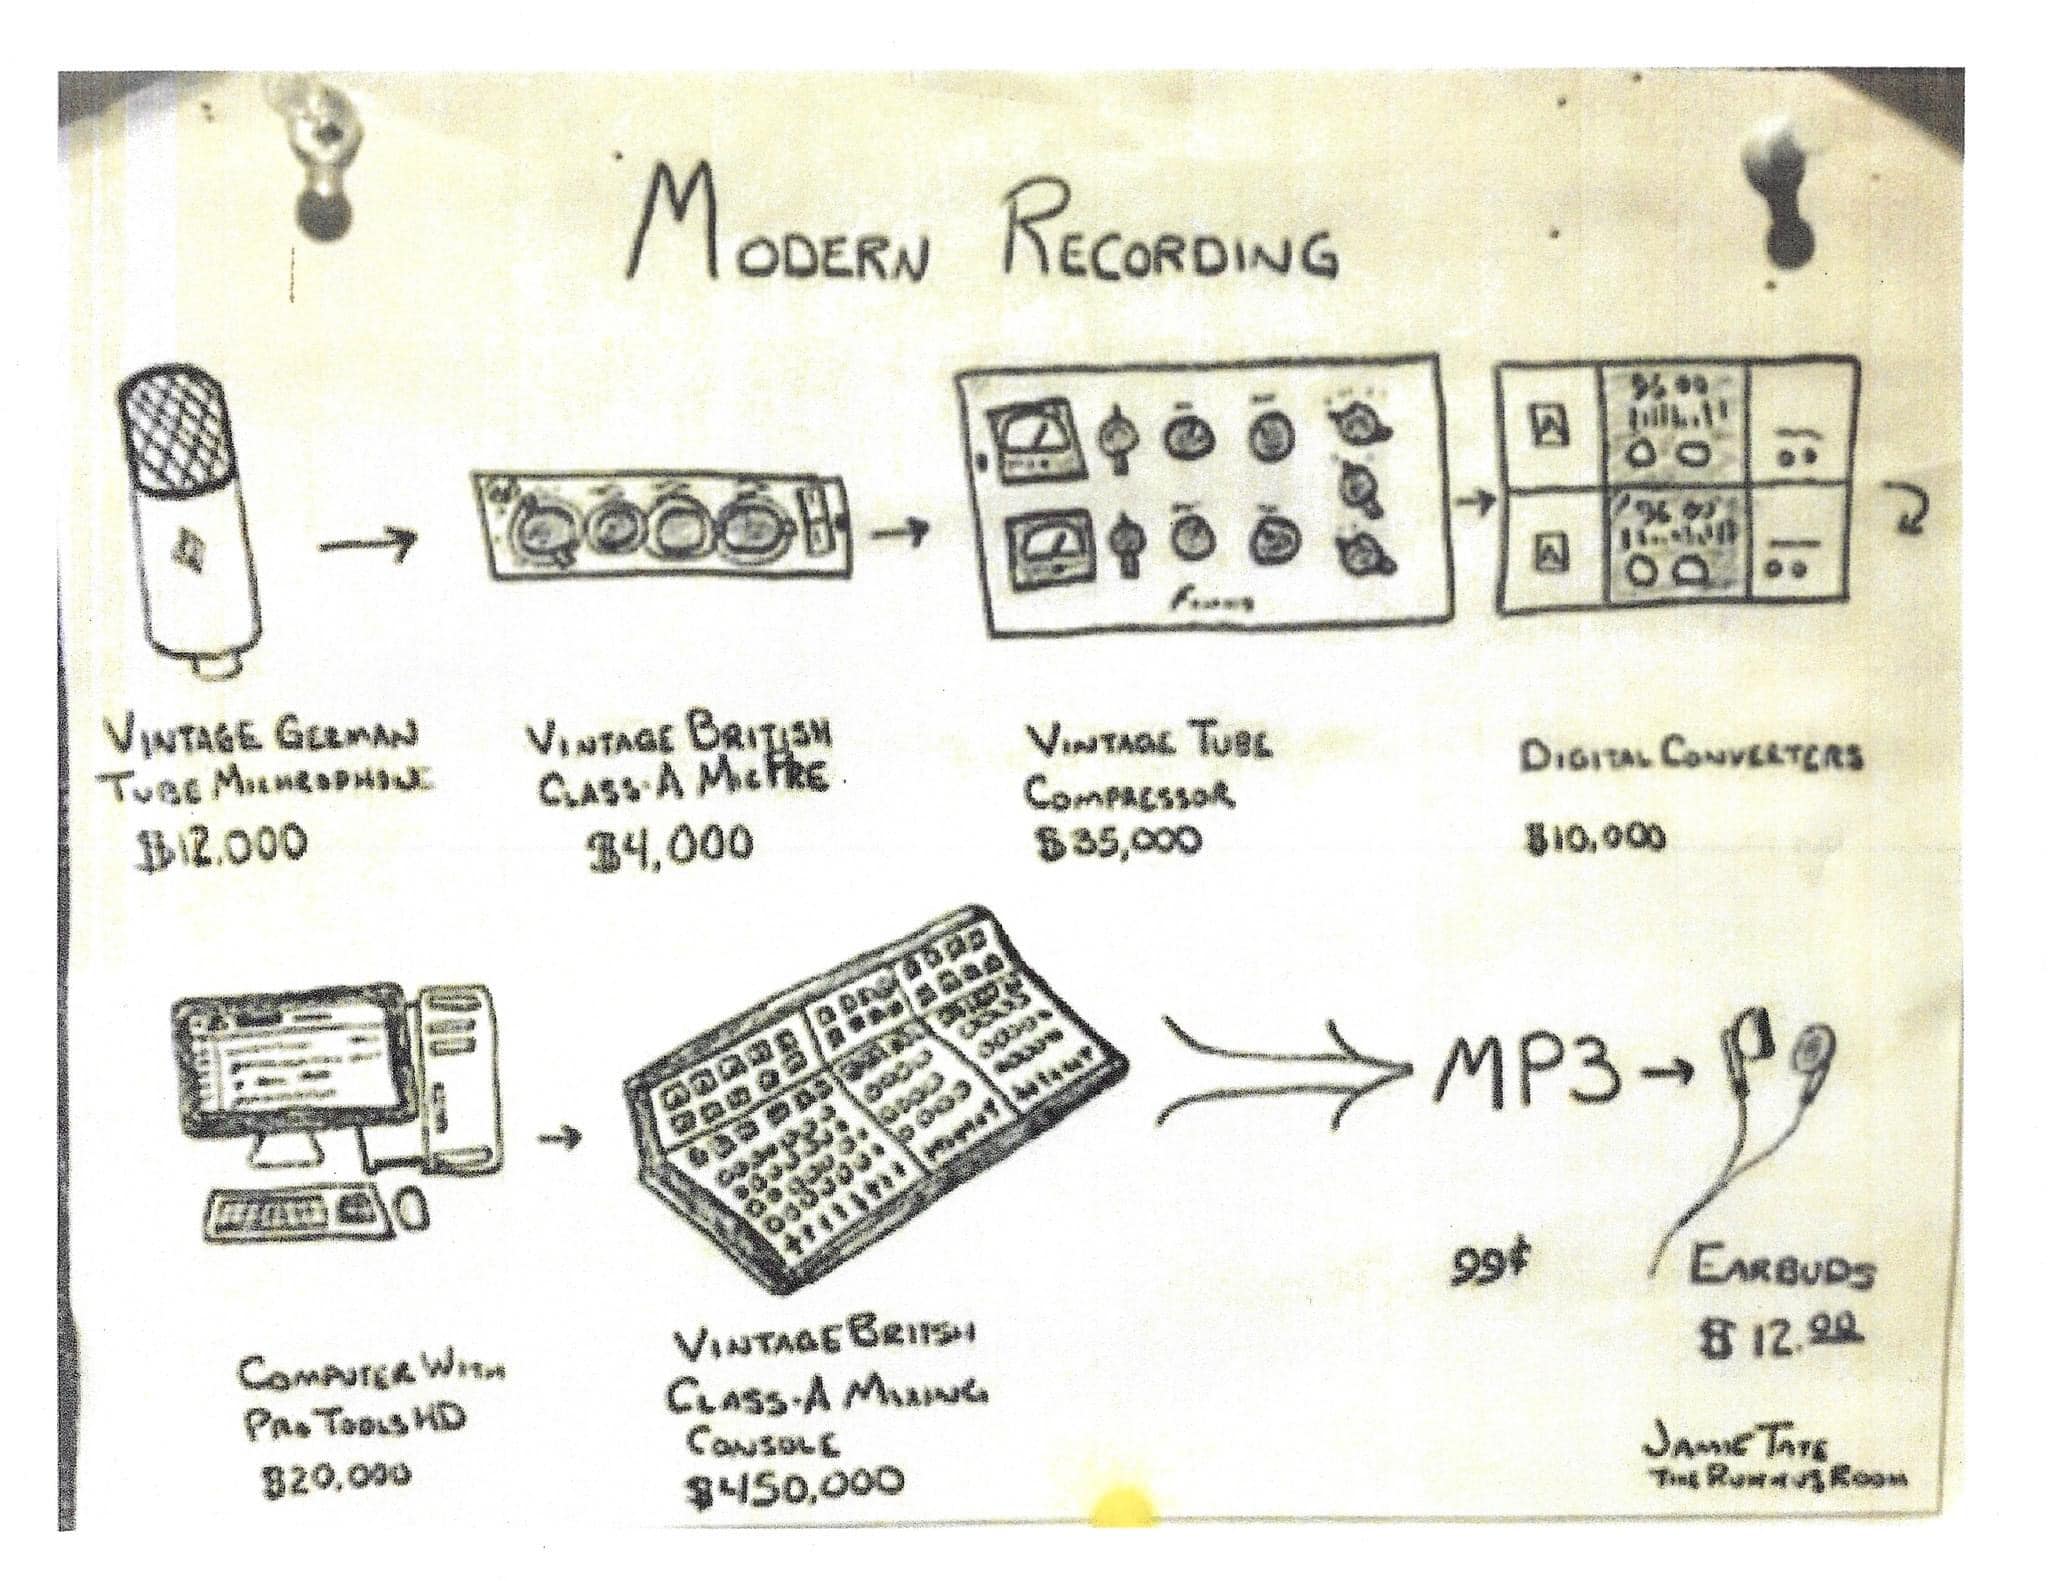 MODERN RECORDING
VINTAGE GERMAN
TUBE MICHROPHONE
$12,000
VINTAGE BRITISH
CLASS-A MIC PRE
$4,000
VINTAGE TUBE
COMPRESSOR
$35,000
DIGITAL CONVERTERS
$10,000
MP3
99¢
EARBUDS
$12.00
COMPUTER WITH
PRO TOOLS HD
$20,000
VINTAGE BRITSH
CLASS-A MIXING
CONSOLE
$450,000
JAMIE TATE
THE ROOM